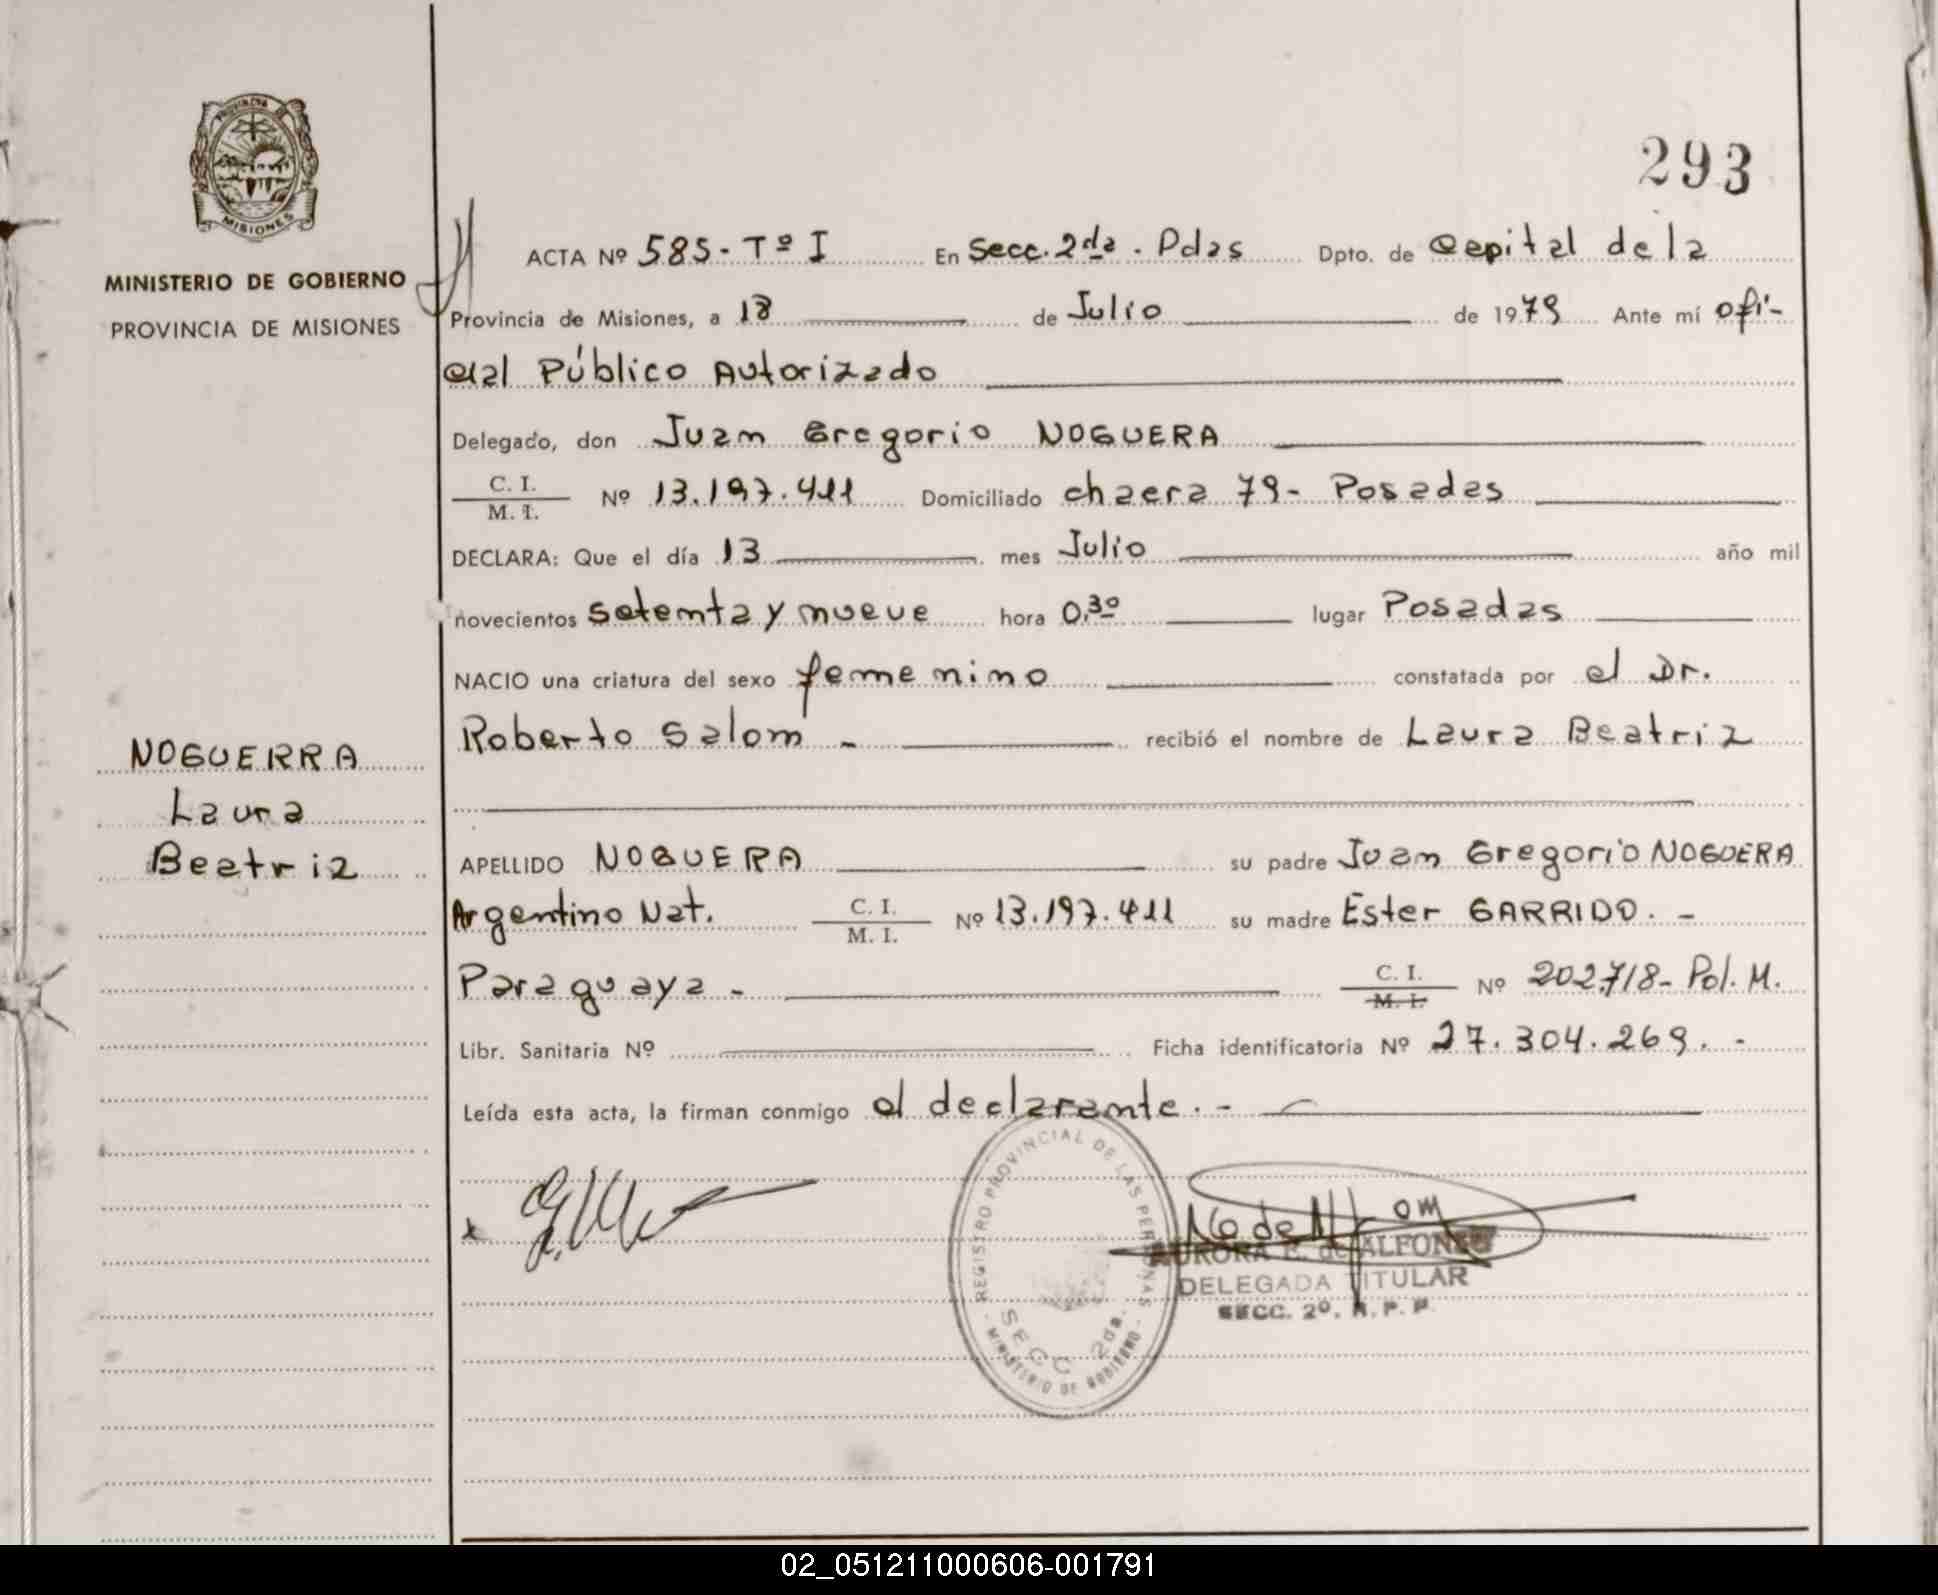 PROVINCIA DE
MISIONES
MINISTERIO DE GOBIERNO
PROVINCIA DE MISIONES
293
ACTA Nº 585 - Tº I En Secc. 2da. Pdas Dpto. de Capital de la
Provincia de Misiones, a 18 de Julio de 1979 Ante mí ofi-
cial Público Autorizado
Delegado, don Juan Gregorio NOGUERA
C. I.
M. I. Nº 13.197.411 Domiciliado chacra 79 - Posadas
DECLARA: Que el día 13 mes Julio año mil
novecientos setenta y nueve hora 0,30 lugar Posadas
NACIO una criatura del sexo femenino constatada por el Dr.
Roberto Salom - recibió el nombre de Laura Beatriz
NOGUERRA
Laura
Beatriz
APELLIDO NOGUERA su padre Juan Gregorio NOGUERA
Argentino Nat. C. I.
M. I. Nº 13.197.411 su madre Ester GARRIDO. -
Paraguaya - C. I.
M. I. Nº 202.718 - Pol. M.
Libr. Sanitaria Nº Ficha identificatoria Nº 27.304.269. -
Leída esta acta, la firman conmigo el declarante. -
REGISTRO PROVINCIAL DE LAS PERSONAS
SECC 2da.
- MINISTERIO DE GOBIERNO -
AURORA E. de ALFONSO
DELEGADA TITULAR
SECC. 2º. R. P. P.
02_051211000606-001791